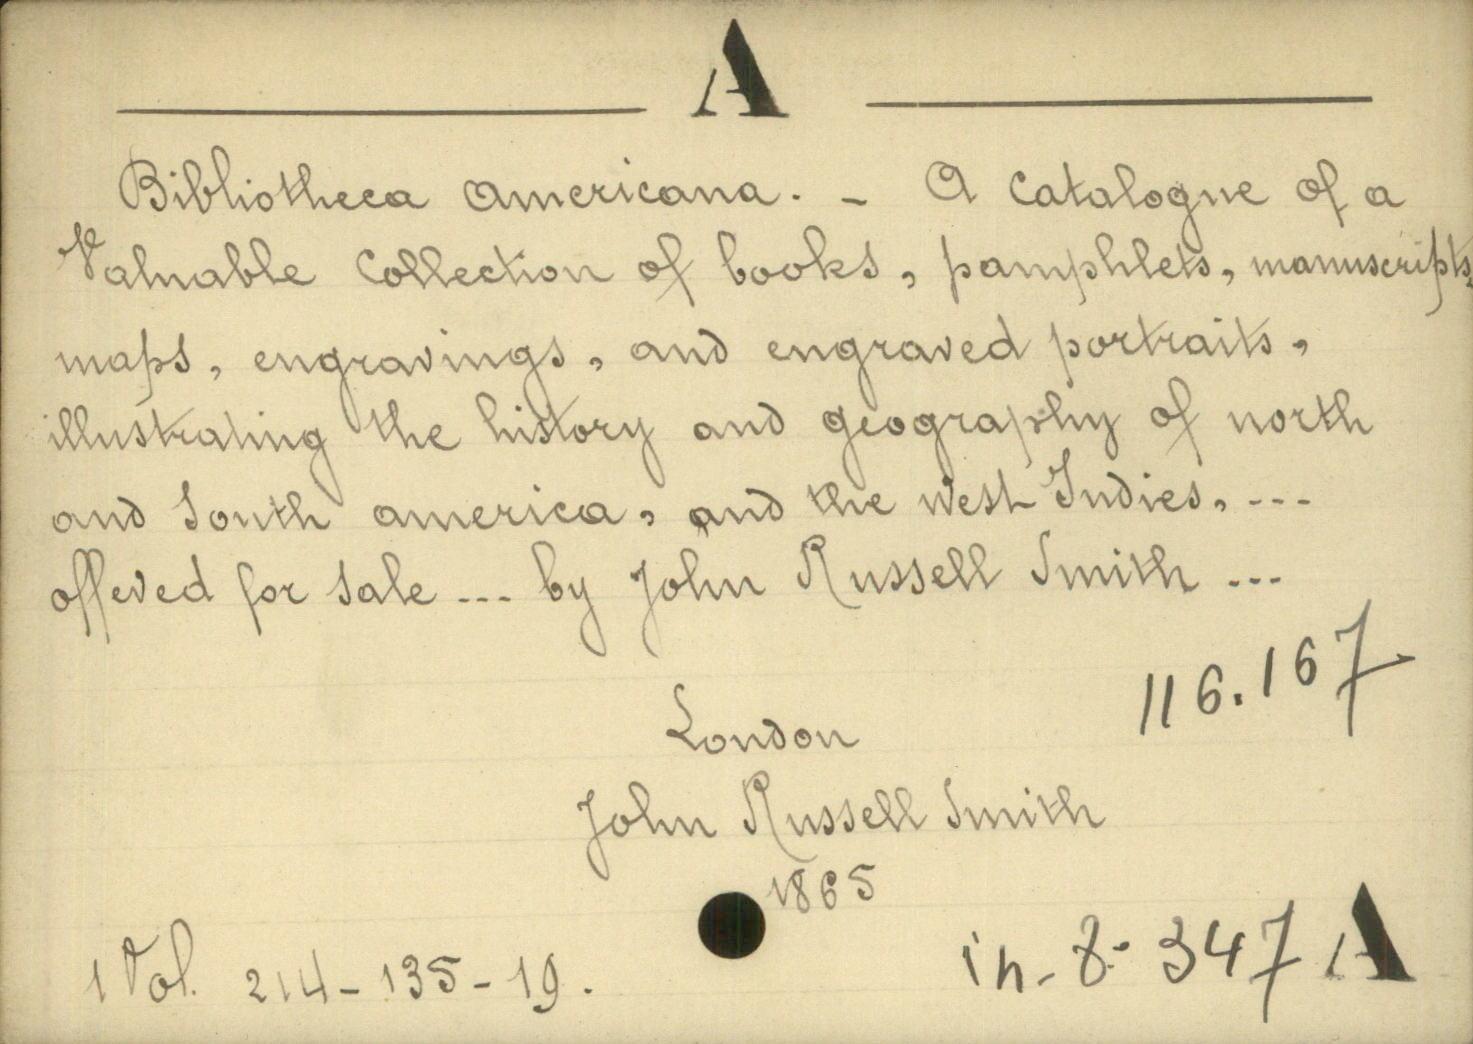 A
Bibliotheca americana. - A Catalogue of a
Valuable Collection of books, pamphlets, manuscripts,
maps, engravings, and engraved portraits,
illustrating the history and geography of north
and South america, and the west Indies, ---
offered for sale --- by John Russell Smith ---
116.167
London
John Russell Smith
1865
1 Vol. 214 - 135 - 19.
in-8° 347 A